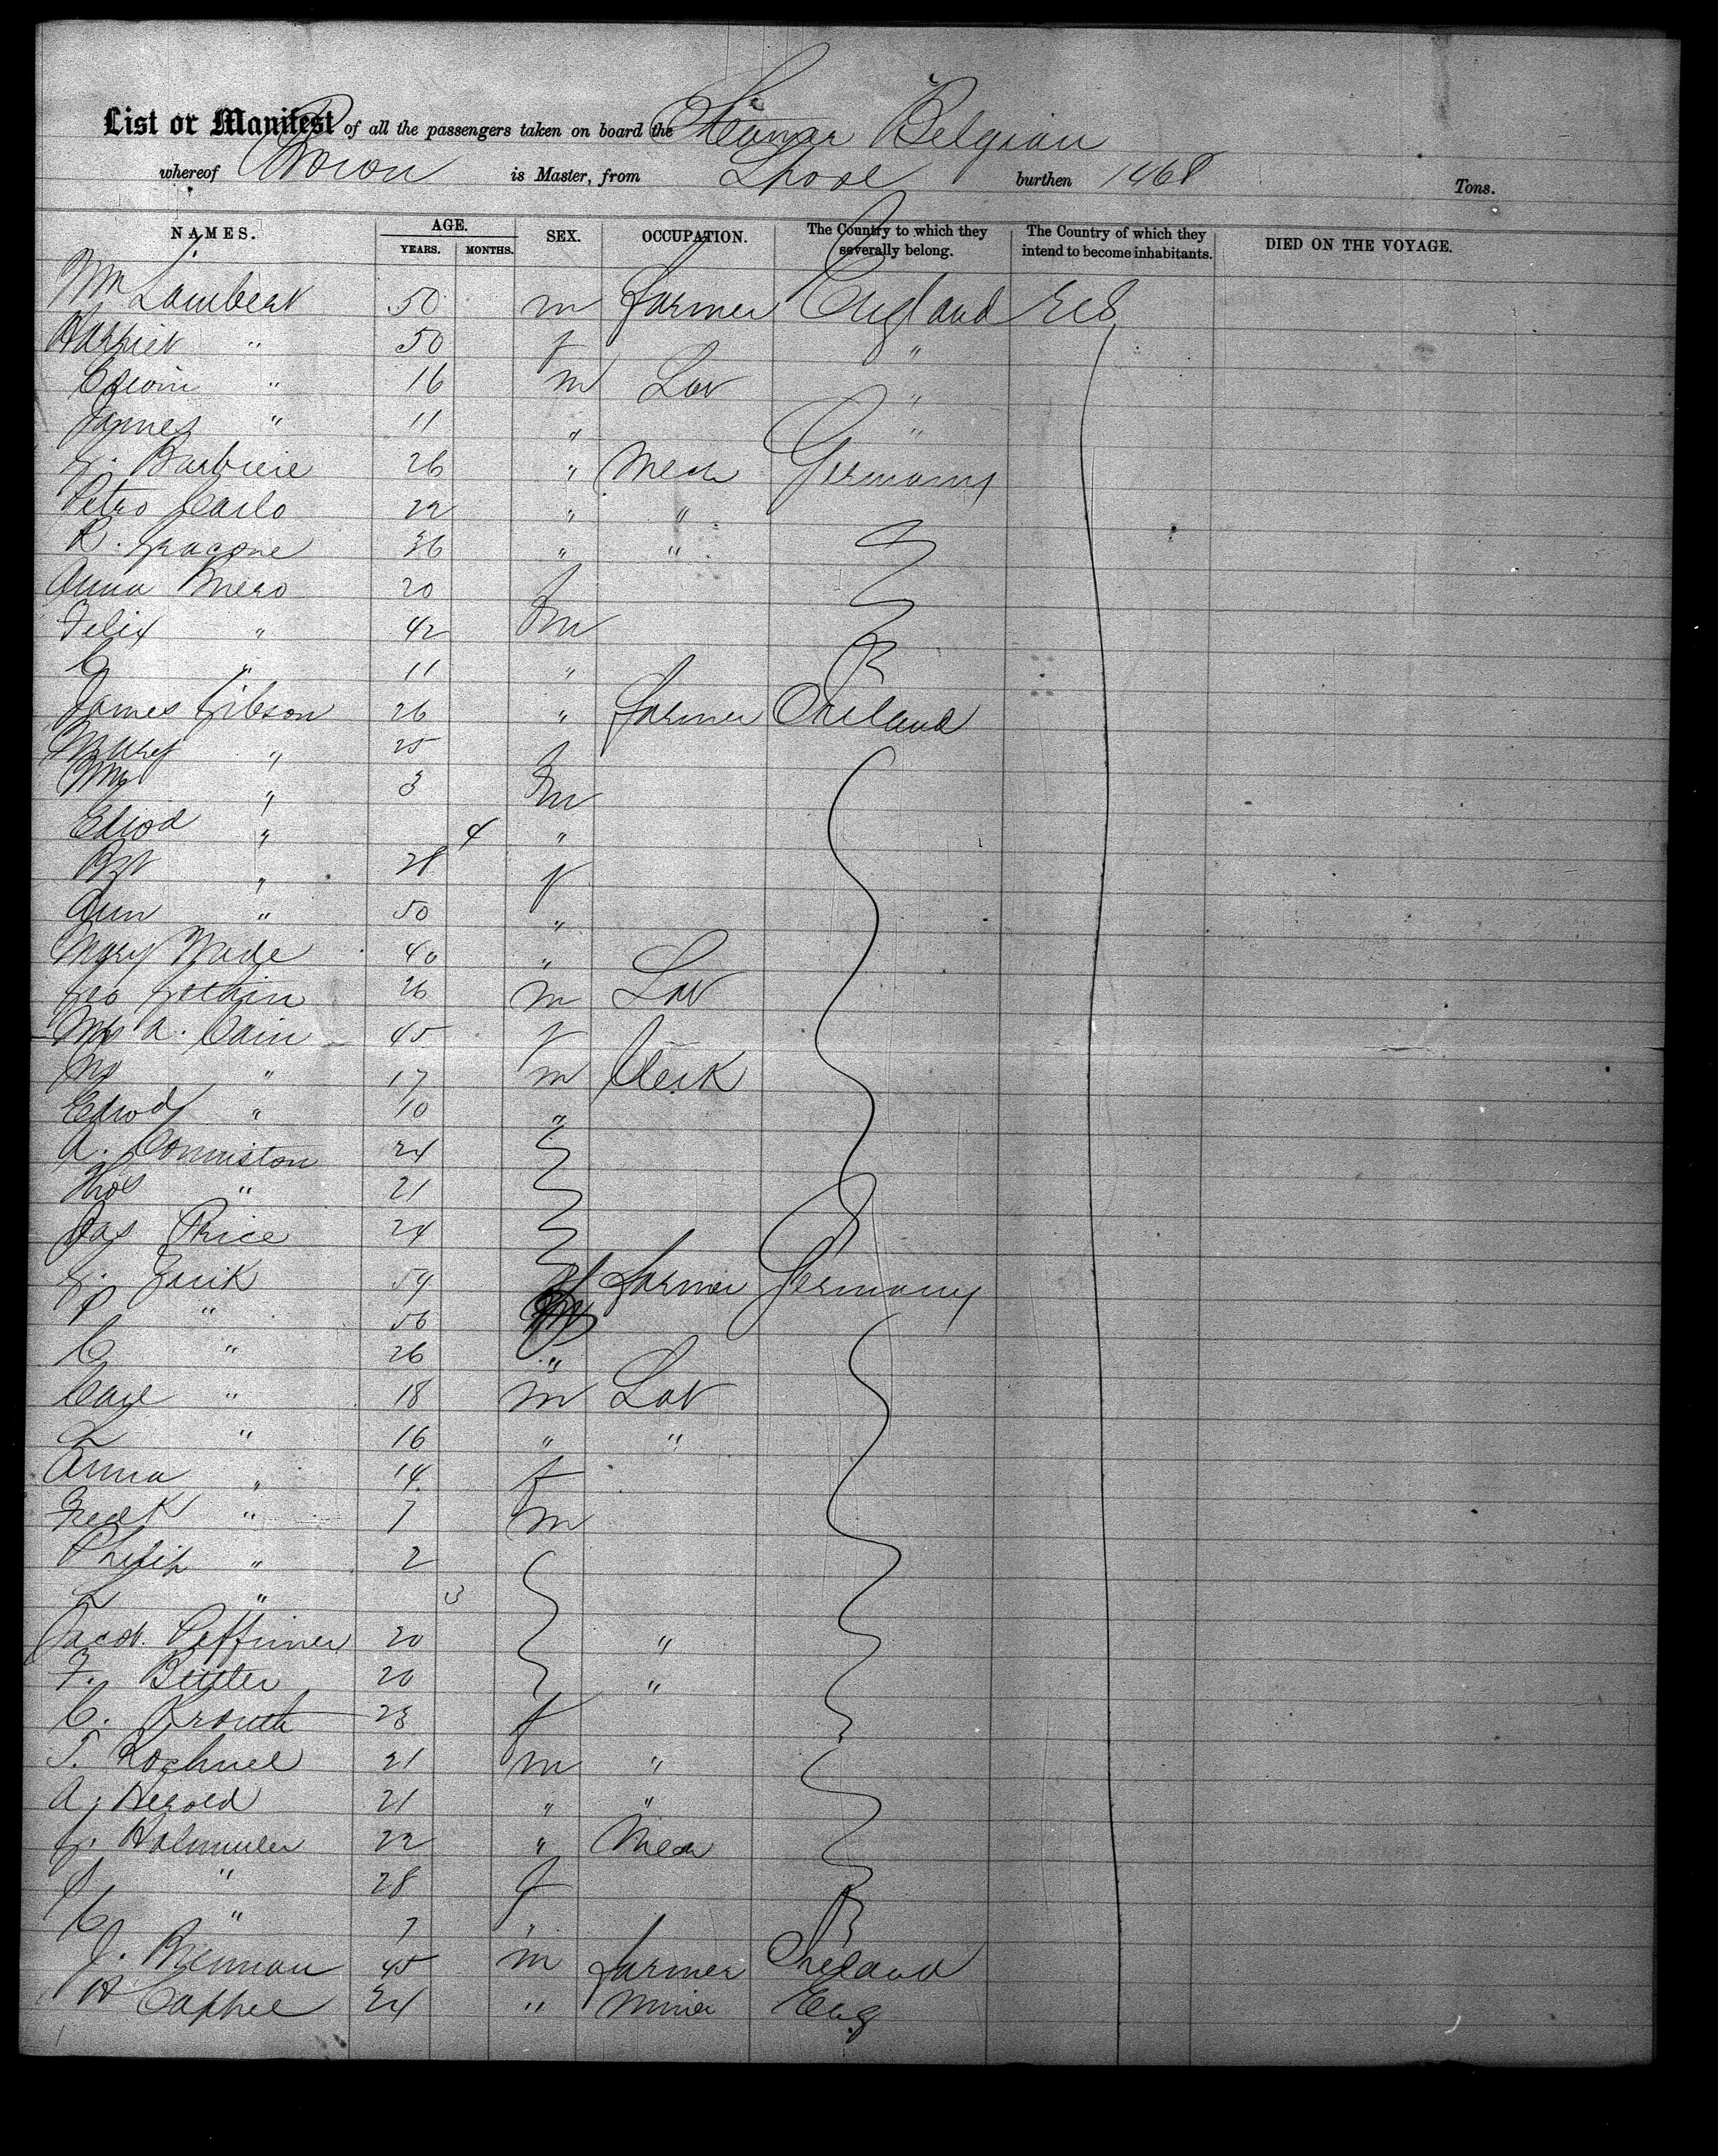 List or Manifest of all the passengers taken on board the Steamer Belgian
whereof Brown is Master, from Lpool burthen 1468 Tons.
NAMES. AGE. YEARS. MONTHS. SEX. OCCUPATION. The Country to which they severally belong. The Country of which they intend to become inhabitants. DIED ON THE VOYAGE.
Wm Lambert 50 m Farmer England U S
Harriet " 50 f "
Edwin " 16 m Lab "
James " 11 " "
G. Barbiere 26 " Mech Germany
Petro Carlo 22 " "
R. Gragone 36 " "
Anna Mero 20 f
Felix " 42 m
C " 11 "
James Gibson 26 " Farmer Ireland
Mary " 25 f
Wm " 3 m
Edwd " 4 "
Bgt " 28 f
Ann " 50 "
Mary Wade 40 "
Geo 26 m Lab
Mrs A. Cain 45 f
Jno " 17 m Clerk
Edwd " 10 "
A. Conniston 24
Thos " 21
Jas Price 24
G. 59 Farmer Germany
P " 56
C " 26 "
Carl " 18 m Lab
L " 16 " "
Anna " 14 f
Fredk " 7 m
Philip " 2
L " 3
Jacob 20 "
F. Beutler 20 "
C. Krouth 23 f
T. Kochnel 21 m "
A. Herold 21 " "
G. Halmuler 22 " Mech
" 28 f
C " 7 "
J. Brennan 45 m Farmer Ireland
H Caphel 24 " Miner Eng